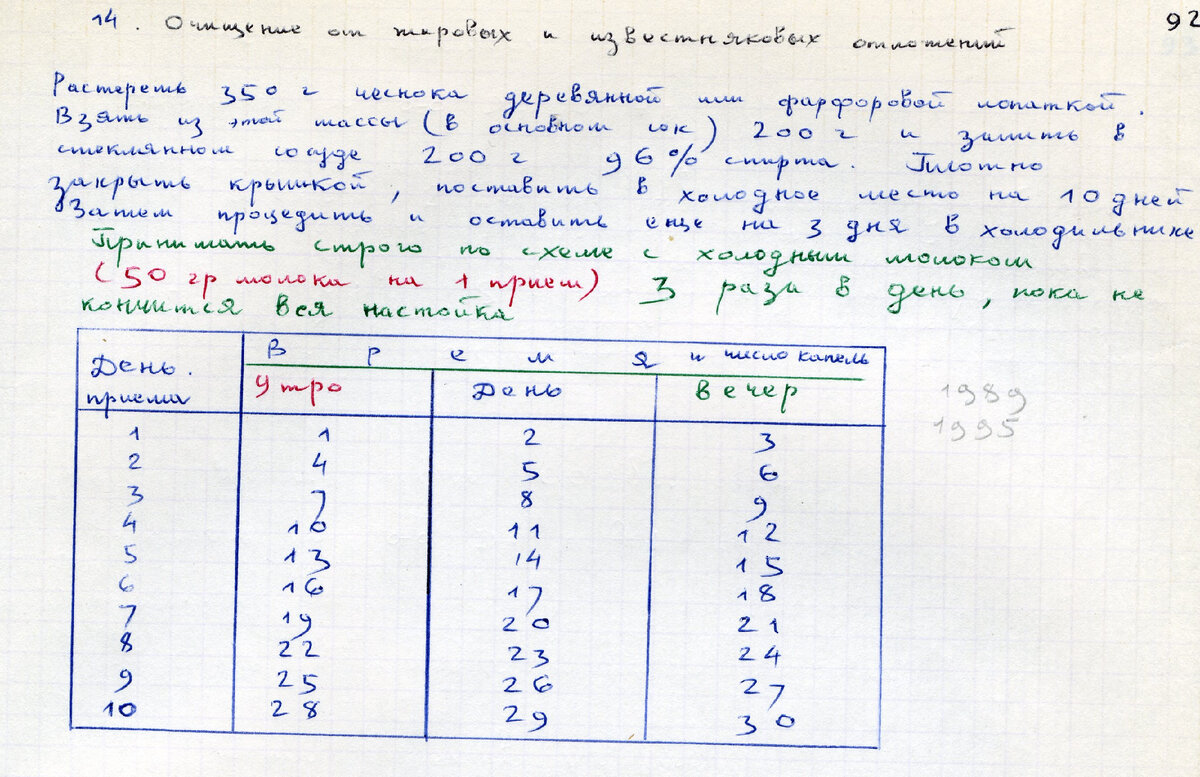 14. Очищение от жировых и известняковых отложений
92
Растереть 350 г чеснока деревянной или фарфоровой лопаткой.
Взять из этой массы (в основном сок) 200 г и залить в
стеклянном сосуде 200 г 96% спирта. Плотно
закрыть крышкой, поставить в холодное место на 10 дней
Затем процедить и оставить еще на 3 дня в холодильнике
Принимать строго по схеме с холодным молоком
(50 гр молока на 1 прием) 3 раза в день, пока не
кончится вся настойка
День приема
Время и число капель
Утро День Вечер
1989
1995
1 1 2 3
2 4 5 6
3 7 8 9
4 10 11 12
5 13 14 15
6 16 17 18
7 19 20 21
8 22 23 24
9 25 26 27
10 28 29 30